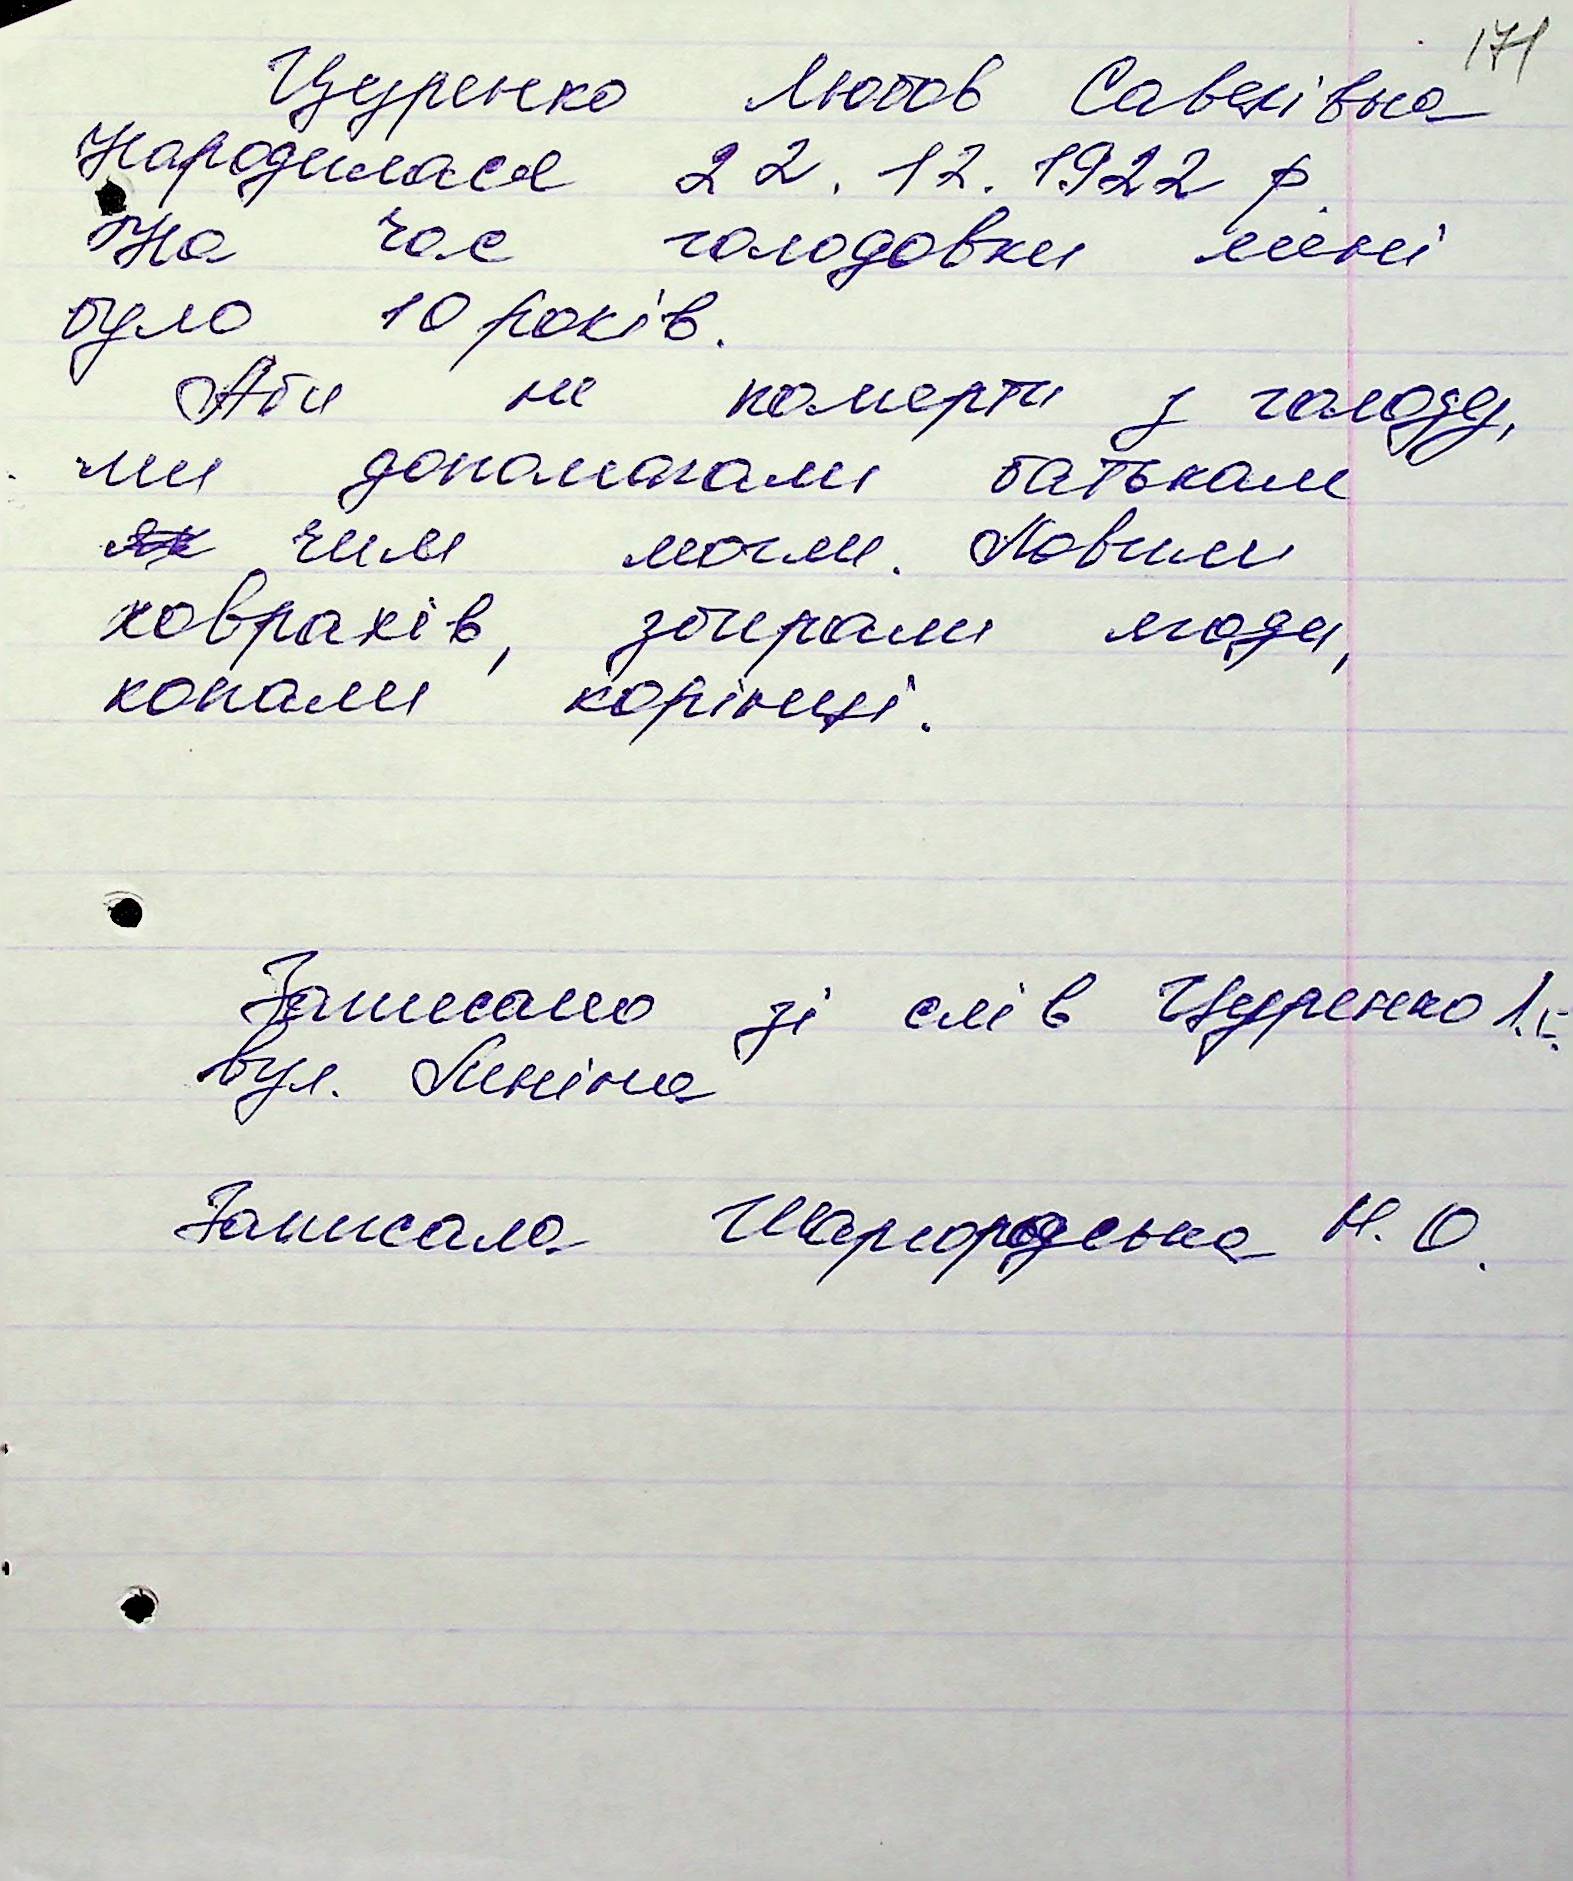 171
Цуренко Любов Савеліївна
Народилася 22.12.1922 р.
На час голодовки мені
було 10 років.
Аби не померти з голоду,
ми допомагали батькам
як чим могли. Ловили
ховрахів, збирали ягоди,
копали корінці.
Записано зі слів Цуренко Л.С.
вул. Леніна
Записала Шаргородська Н. О.